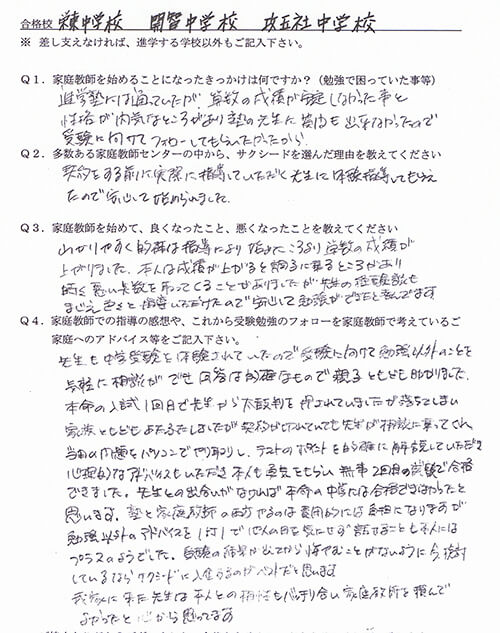 合格校 栄東中学校 開智中学校 攻玉社中学校
※ 差し支えなければ、進学する学校以外もご記入下さい。
Q1. 家庭教師を始めることになったきっかけは何ですか？（勉強で困っていた事等）
進学塾には通っていたが 算数の成績が安定しなかった事と
性格が内気なところがあり塾の先生に質問も出来なかったので
受験に向けてフォローしてもらいたかったから.
Q2. 多数ある家庭教師センターの中から、サクシードを選んだ理由を教えてください
契約をする前に実際に指導していただく先生に体験指導してもらえ
たので安心して始められました.
Q3. 家庭教師を始めて、良くなったこと、悪くなったことを教えてください
わかりやすく的確な指導により 始めたころより 算数の成績が
上がりました. 本人は成績が上がると調子に乗るところがあり
時々悪い点数を取ってくることがありましたが 先生の経験談も
まじえ色々と指導いただけたので安心して勉強ができたと思んでます
Q4. 家庭教師での指導の感想や、これから受験勉強のフォローを家庭教師で考えているご
家庭へのアドバイス等をご記入下さい。
先生も中学受験を体験されていたので受験に向けて勉強以外のことを
気軽に相談ができ 回答は的確なもので親子ともども助かりました.
本命の入試1回目で先生から太鼓判を押されていましたが落ちてしまい
家族ともどもあたふたしましたが契約が切れていても先生が相談に乗ってくれ
当日の問題をパソコンでやり取りし、テストのポイントを的確に解説していただき
心理的なアドバイスもいただき 本人も勇気をもらい 無事2回目の試験で合格
できました. 先生との出会いがなければ本命の中学には合格できなかったと
思います. 塾と家庭教師の両方やるのは費用的には負担になりますが
勉強以外のアドバイスを1対1で他人の目を気にせず話せることも本人には
プラスのようでした. 受験の結果が出てから悔やむことがないように今検討
しているならサクシードに入会するのがベストだと思います
我家に来た先生は本人との相性もバッチリ合い家庭教師を頼んで
よかったと心から思ってます